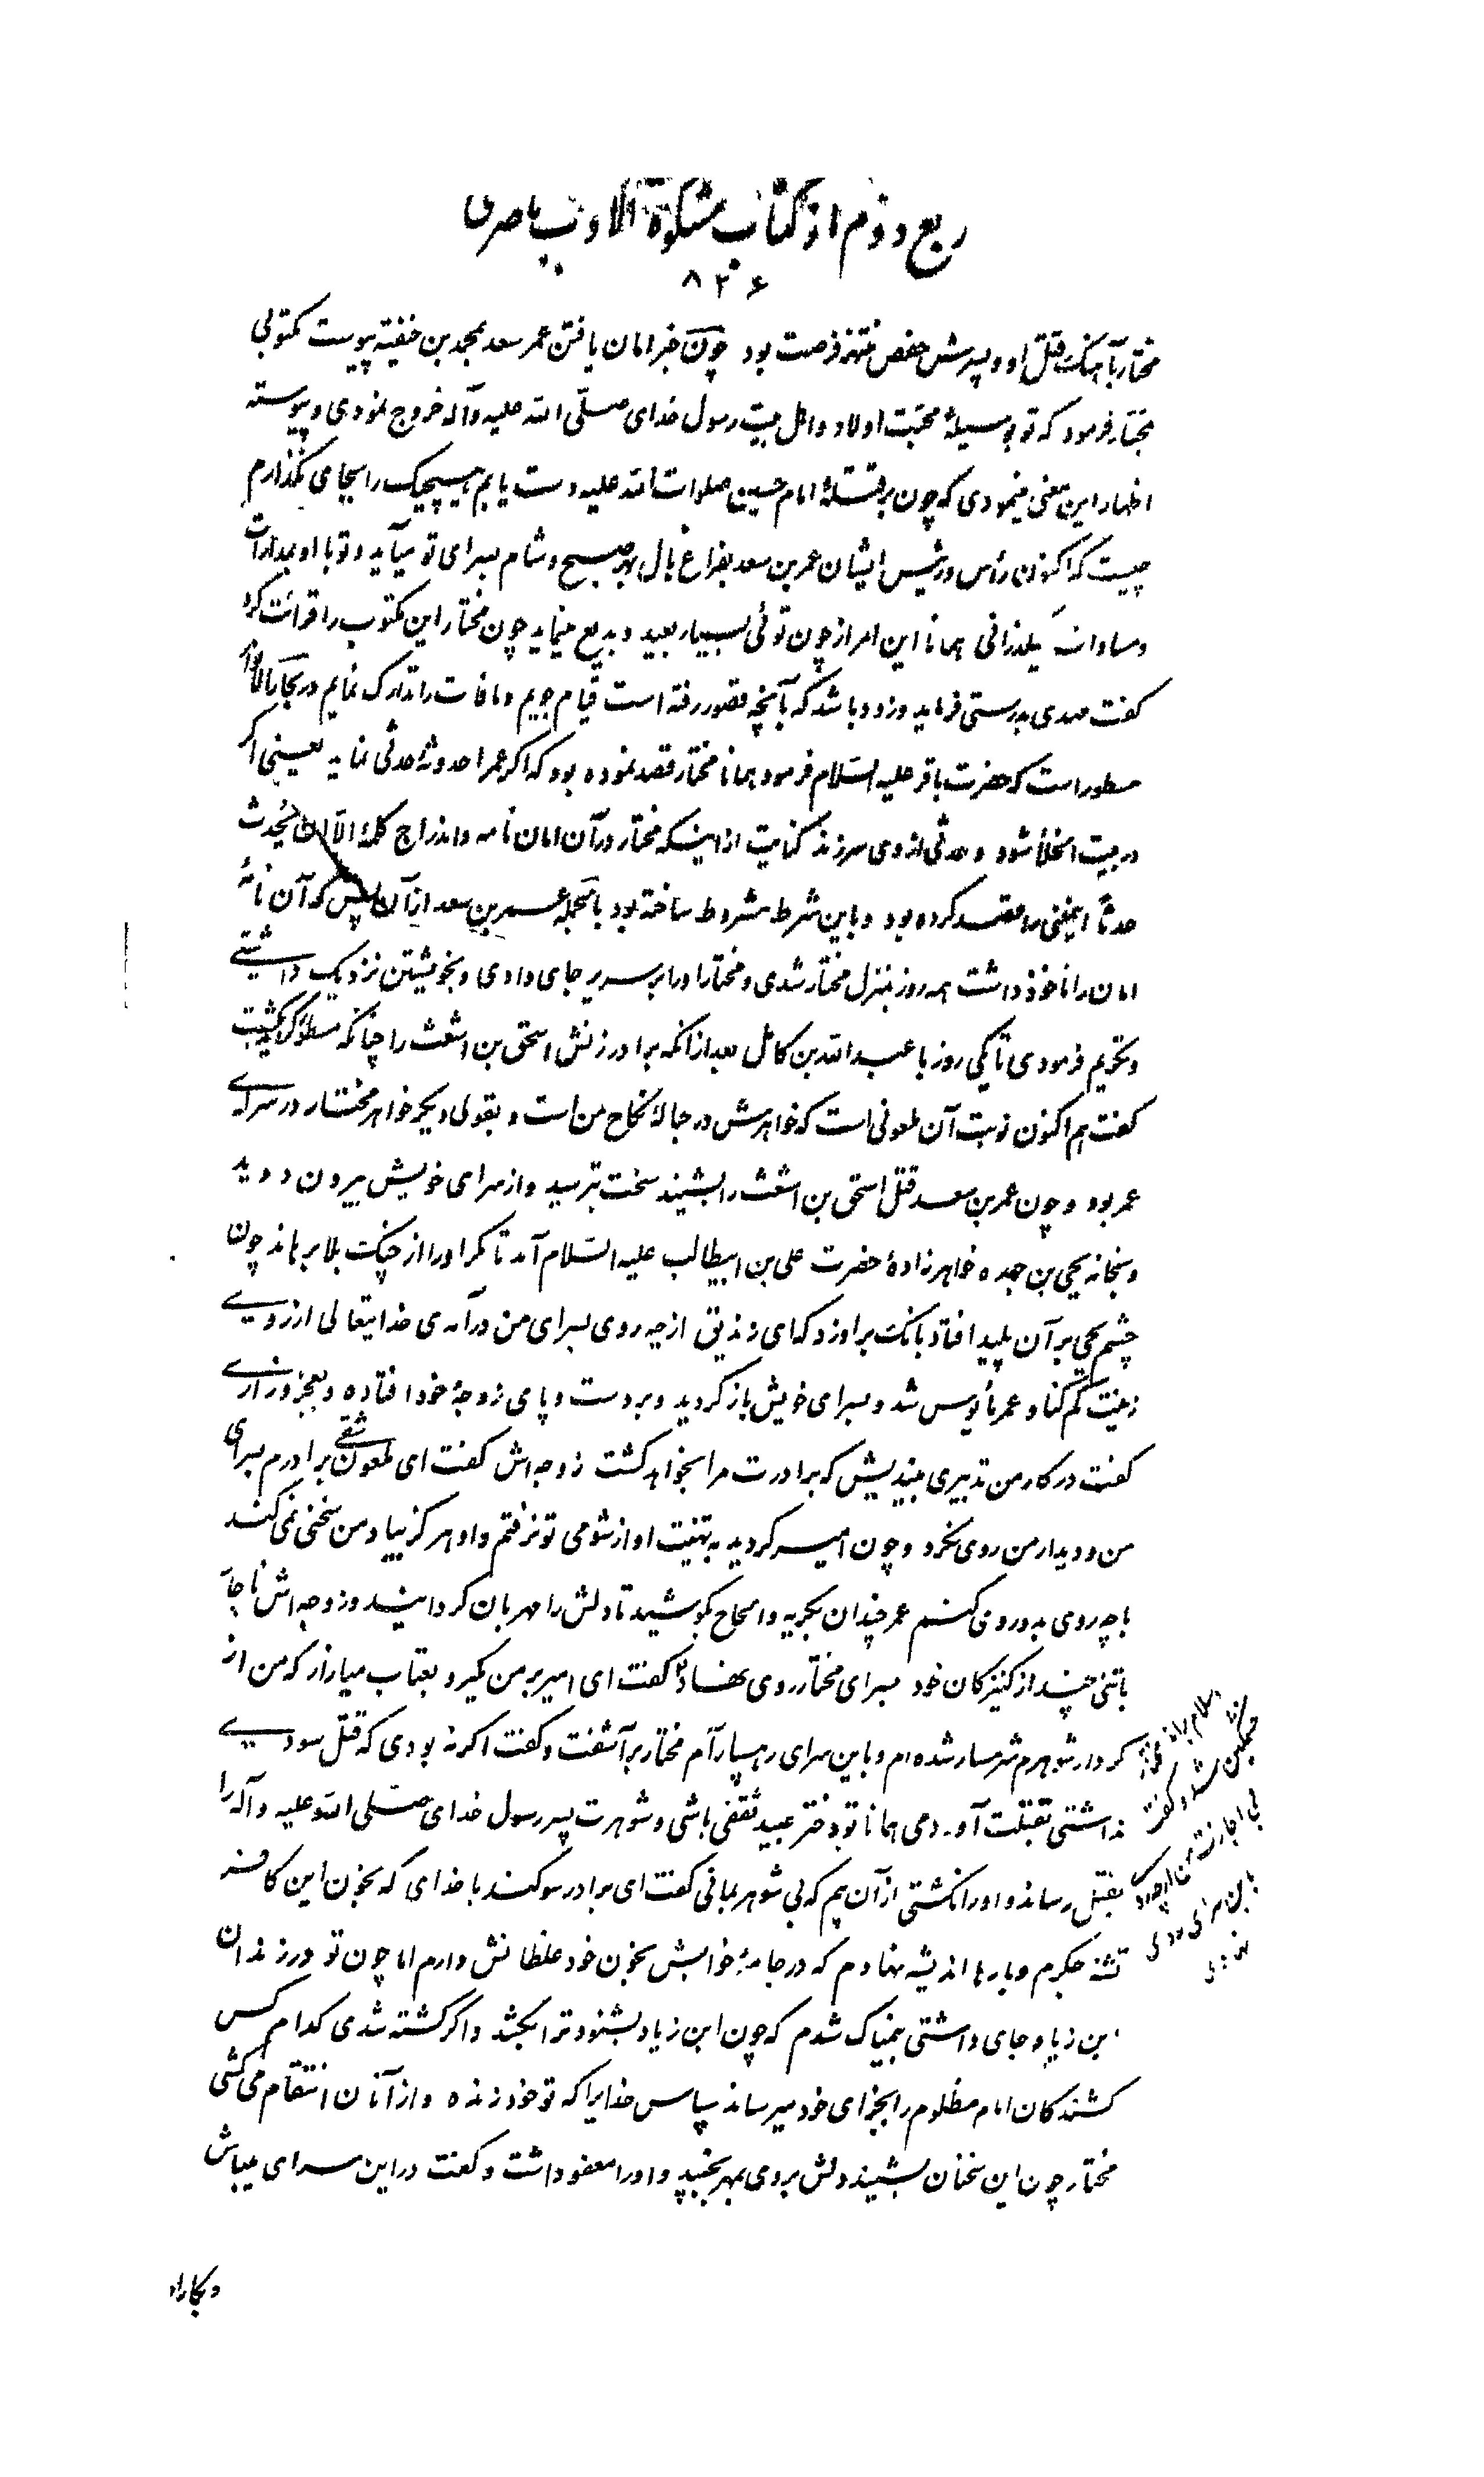 ربع دوم از کتاب مشکوة الادب ناصری
۸۲۶
مختار آهنک قتل او و پسرش حفص منتهز فرصت بود چون خبر امان یافتن عمر سعد بمحمد بن حنفیه پیوست مکتوبی
بمختار فرمود که تو بوسیلهٔ محبت اولاد و اهل بیت رسول خدای صلّی الله علیه و آله خروج نمودی و پیوسته
اظهار این معنی مینمودی که چون بر قتلهٔ امام حسین صلوات الله علیه دست یابم هیچیک را بجا می نگذارم
چیست که اکنون رأس و رئیس ایشان عمر بن سعد بفراغ بال بهر صبح و شام بسرای تو میآید و تو با او بمدارات
و مساوات میگذرانی همانا این امر از چون توئی بسیار بعید و بدیع مینماید چون مختار این مکتوب را قرائت کرد
کفت مهدی بدرستی فرماید و زود باشد که بآنچه قصور رفته است قیام جویم و مافات را تدارک نمایم در بحار الانوار
مسطور است که حضرت باقر علیه السّلام فرمود همانا مختار قصد نموده بود که اگر عمر احدوثهٔ حدثی نماید یعنی اکر
در بیت الخلأ شود و حدثی از وی سر زند کنایت از اینکه مختار در آن امان نامه و اندراج کلمهٔ الّا ان یحدث
حدثاً اینمعنی را قصد کرده بود و باین شرط مشروط ساخته بود بالجمله عمر بن سعد از آن پس که آن نامهٔ
امان را ماخوذ داشت همه روز بمنزل مختار شدی و مختار او را بر سریر جای دادی و بخویشتن نزدیک داشتی
و تکریم فرمودی تا یکی روز با عبد الله بن کامل بعد از آنکه برادر زنش اسحق بن اشعث را چنانکه مسطور کردید بکشت
کفت هم اکنون نوبت آن ملعونی است که خواهرش در حبالهٔ نکاح من است و بقولی دیکر خواهر مختار در سرای
عمر بود و چون عمر بن سعد قتل اسحق بن اشعث را بشنید سخت بترسید و از سرای خویش بیرون دوید
و بخانه یحیی بن جعده خواهر زادهٔ حضرت علی بن ابیطالب علیه السّلام آمد تا مکر او را از چنک بلا برهاند چون
چشم یحیی بر آن پلید افتاد بانک بر او زد که ای زندیق از چه روی بسرای من در آمدی خدایتعالی از روی
زمینت کم کناد عمر مأیوس شد و بسرای خویش باز کردید و بر دست و پای زوجهٔ خود افتاده و بعجز و زاری
کفت در کار من تدبیری بیندیش که برادرت مرا بخواهد کشت زوجه اش کفت ای ملعون شقی برادرم بسرای
من و دیدار من روی نکرد و چون امیر کردید به تهنیت او از شومی تو نرفتم و او هر کز بیاد من سخنی نمی کند
با چه روی بدو روی کنم عمر چندان بکریه و الحاح بکوشید تا دلش را مهربان کردانید و زوجه اش ناچار
با تنی چند از کنیزکان خود بسرای مختار روی نهاد کفت ای امیر بر من مکیر و بعتاب میازار که من از
کردار شوهرم شرمسار شده ام و باین سرای رهسپار آم مختار بر آشفت و کفت اکر نه بودی که قتل سودی
نداشتی بقتلت آوردمی همانا تو دختر عبید ثقفی باشی و شوهرت پسر رسول خدای صلّی الله علیه و آله را
بقتل رساند و او را نکشتی از آن بیم که بی شوهر بمانی کفت ای برادر سوکند با خدای که بخون این کافر
تشنه جکرم و بارها اندیشه نهادم که در جامهٔ خوابش بخون خود غلطانش دارم اما چون تو در زندان
ابن زیاد جای داشتی بیمناک شدم که چون ابن زیاد بشنود ترا بکشد و اکر کشته شدی کدام کس
کشندکان امام مظلوم را بجزای خود میرساند سپاس خدایرا که تو خود زنده و از آنان انتقام می کشی
مختار چون این سخنان بشنید دلش بر وی بمهر بجنبید و او را معفو داشت و کفت در این سرای میباش
سلام براند
خشمکین شد و کفت
بی اجازت من از چه روی
باین سرای
و بکار او